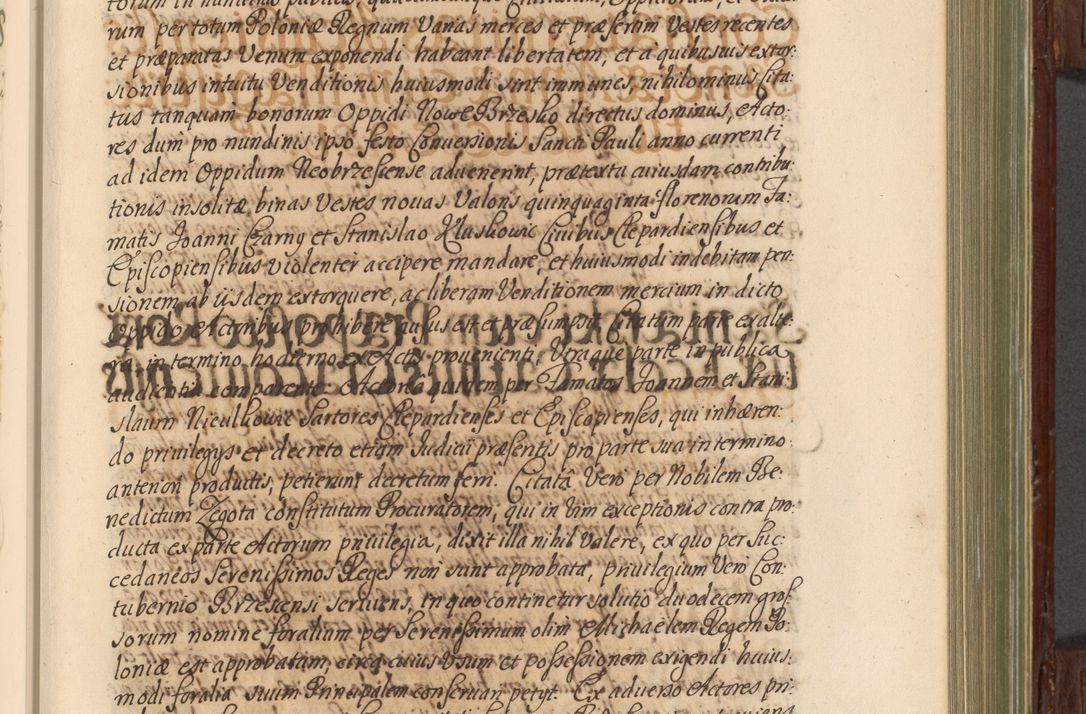 rum per totum Poloniæ Regnum Varias merces et præsertim Vestes recentes
et præparatas Venum exponendi habeant libertatem, et a quibusuis extor:
sionibus intuitu Venditionis huiusmodi sint immunes, nihilominus Cita:
tus tanquam bonorum Oppidi Nowe Brzesko directus dominus, Acto:
res dum pro nundinis ipso festo Conuersionis Sancti Pauli anno currenti
ad idem Oppidum Neobrzescense aduenerint, prætextu cuiusdam contribu:
tionis insolitæ binas Vestes nouas Valoris quinquaginta florenorum Fa:
matis Joanni Czarny et Stanislao Kluskowic Ciuibus Clepardiensibus et
Episcopiensibus violenter accipere mandare, et huiusmodi indebitam pen:
sionem ab ijsdem extorquere, ac liberam Venditionem mercium in dicto
Oppido Actoribus prohibere ausus est et præsumpsit, Citatum parte ex alte:
ra in termino hodierno ex Actis prouenienti, Utraque parte in publica
audientia comparente: Actorea quidem per Famatos Joannem et Stani:
slaum Niculkowic Sartores Clepardienses et Episcopienses, qui inhæren:
do priuilegijs et decreto etiam Iudicii præsentis pro parte sua in termino
anteriori productis, petierunt decretum ferri. Citatâ Vero per Nobilem Be:
nedictum Zegota constitutum Procuratorem, qui in vim exceptionis contra pro:
ducta ex parte Actorum priuilegia, dixit illa nihil Valere, ex quo per Suc:
cedaneos Serenissimos Reges non sunt approbata, priuilegium Vero Con:
tubernio Brzescensi seruiens, in quo continetur solutio duodecem gros:
sorum nomine foralium per Serenissimum olim Michaelem Regem Po:
loniæ est approbatam, circa cuius Vsum et possessionem exigendi huius:
modi foralia suum Principalem conseruari petyt. Ex aduerso Actores pri: